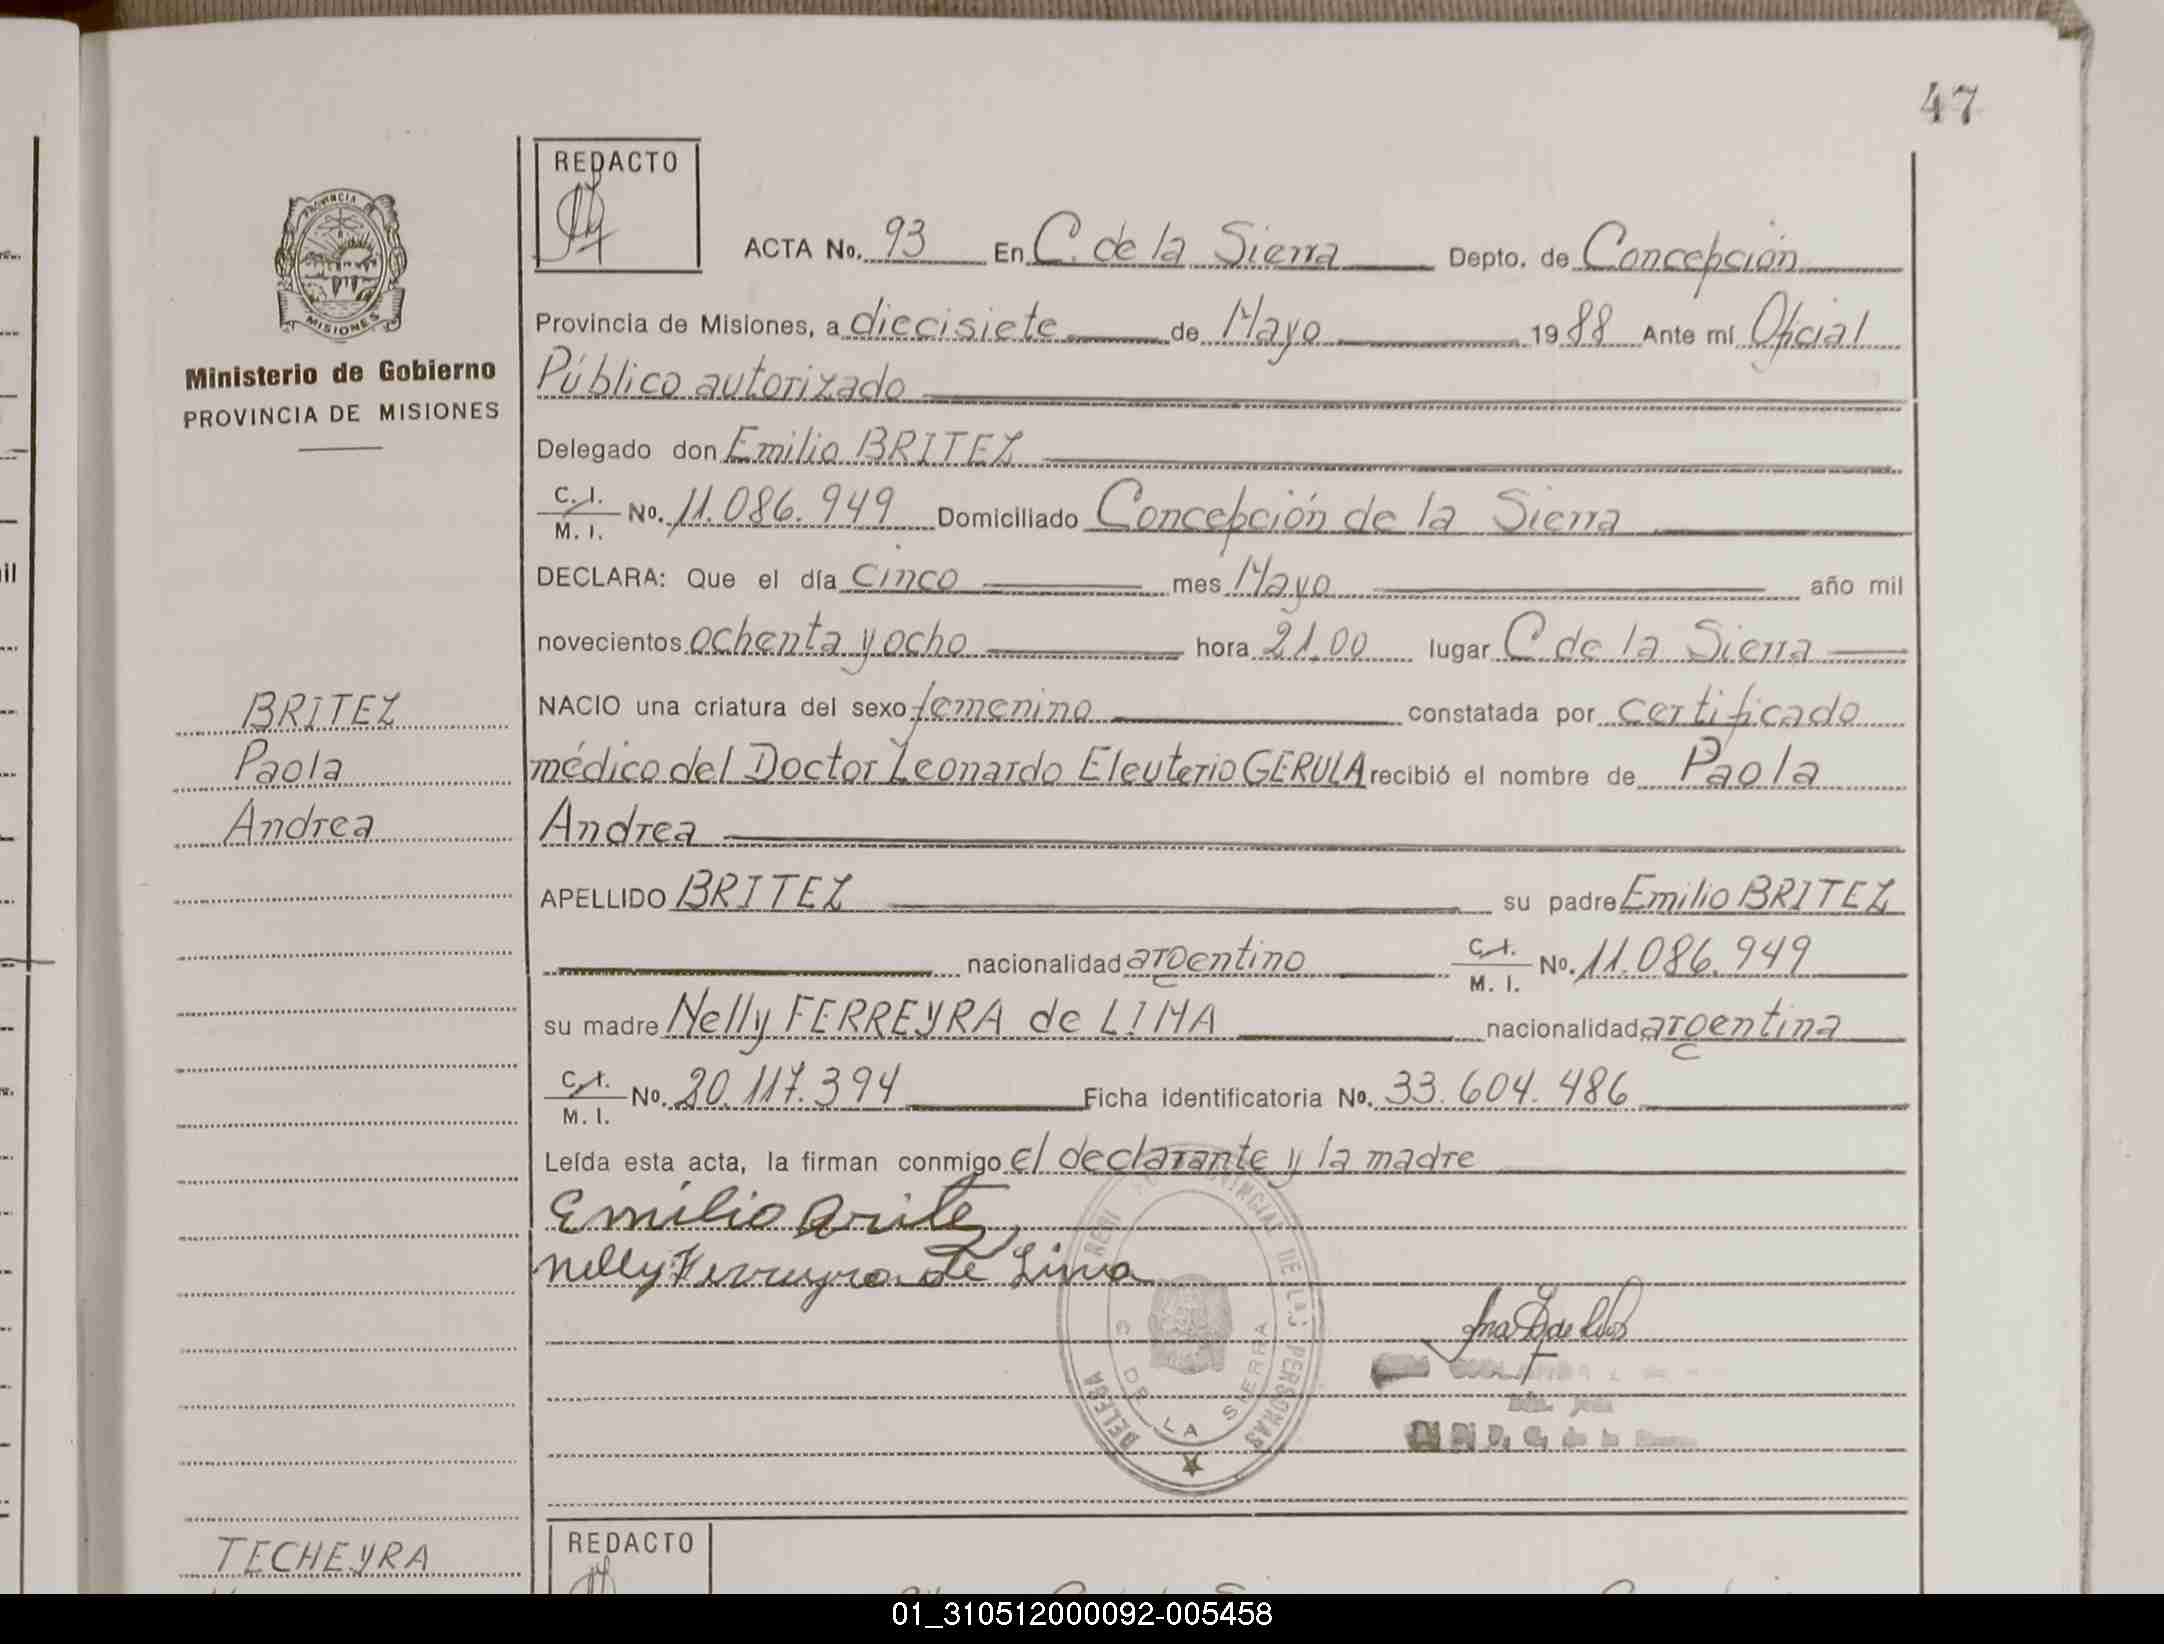 47
REDACTO
PROVINCIA
MISIONES
Ministerio de Gobierno
PROVINCIA DE MISIONES
ACTA No. 93 En C. de la Sierra Depto. de Concepción
Provincia de Misiones, a diecisiete de Mayo 1988 Ante mí Oficial
Público autorizado
Delegado don Emilio BRITEZ
C. I. / M. I. No. 11.086.949 Domiciliado Concepción de la Sierra
DECLARA: Que el día cinco mes Mayo año mil
novecientos ochenta y ocho hora 21,00 lugar C de la Sierra
NACIO una criatura del sexo femenino constatada por certificado
médico del Doctor Leonardo Eleuterio GERULA recibió el nombre de Paola
Andrea
APELLIDO BRITEZ su padre Emilio BRITEZ
nacionalidad argentino C. I. / M. I. No. 11.086.949
su madre Nelly FERREYRA de LIMA nacionalidad argentina
C. I. / M. I. No. 20.117.394 Ficha identificatoria No. 33.604.486
Leída esta acta, la firman conmigo el declarante y la madre
Emilio Britez
Nelly Ferreyra de Lima
DE LAS PERSONAS
C DE LA SIERRA
BRITEZ
Paola
Andrea
TECHEYRA
REDACTO
il
01_310512000092-005458